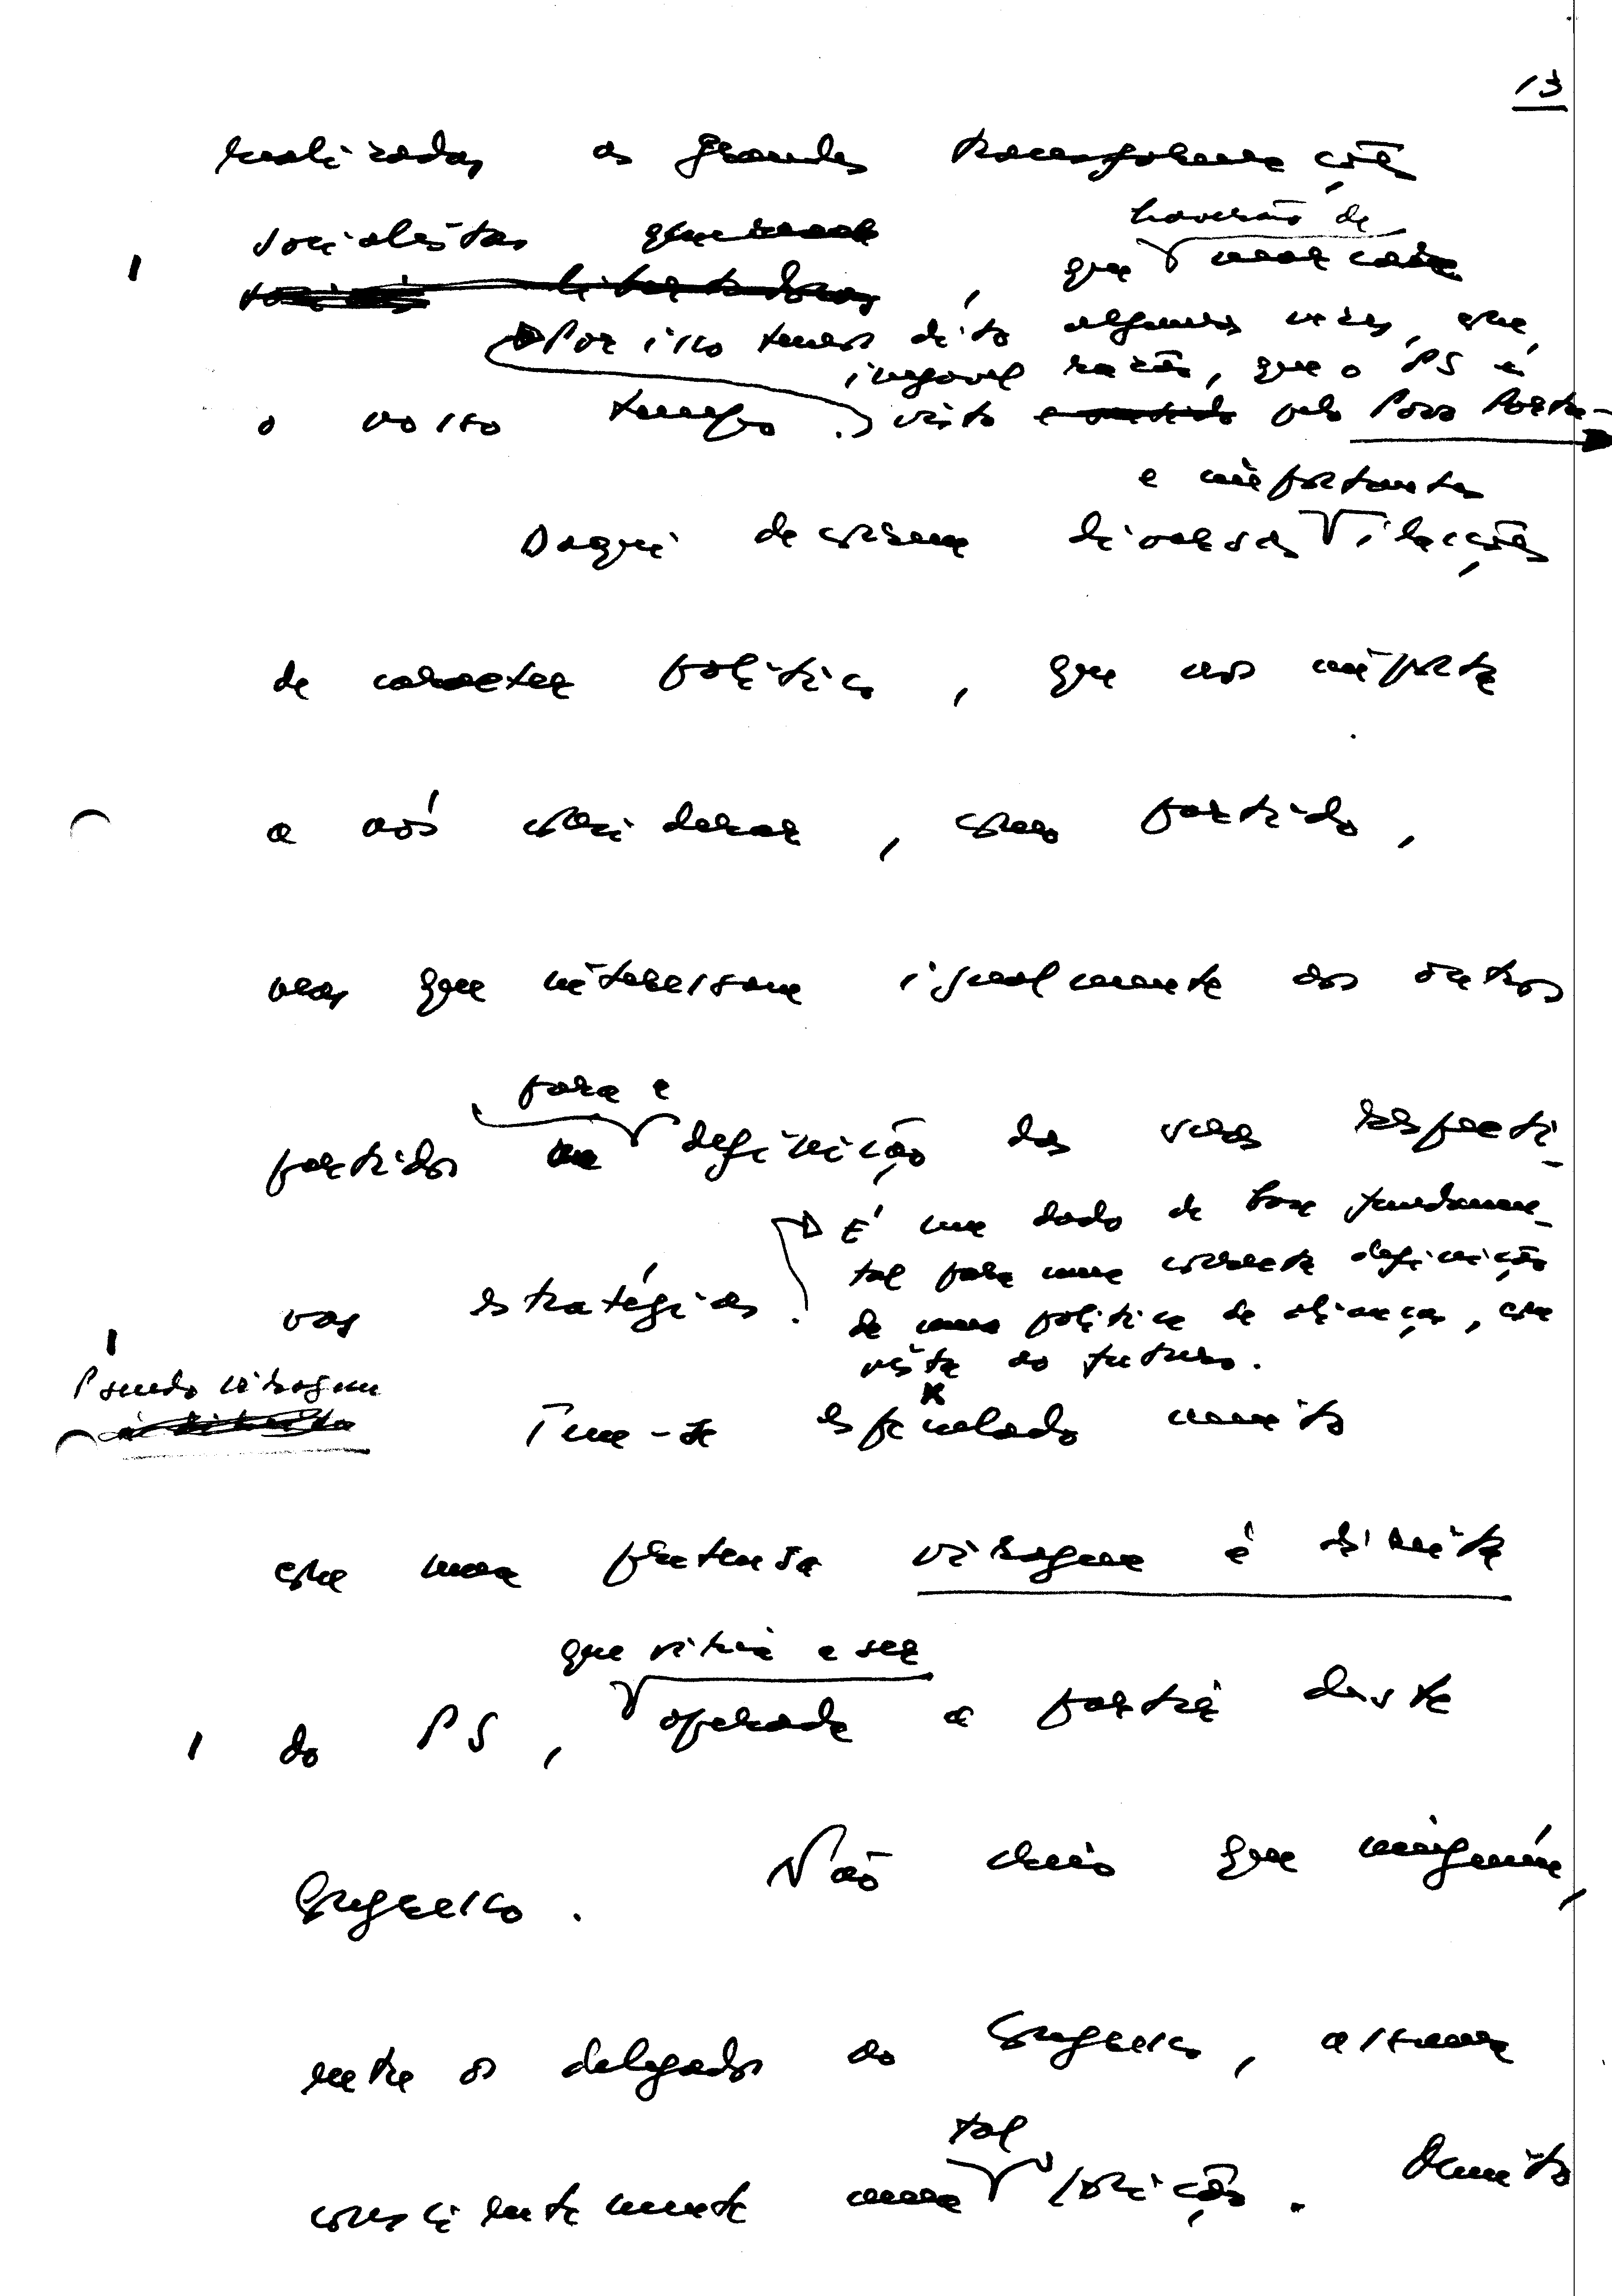 13
realizadas as grandes transformações
socialistas que
haverão de
que marcar
o nosso tempo.
Por isso temos dito algumas vezes, com
inegável razão, que o PS é
visto pelo Povo Portu-
e importantes
Daqui decorrem diversas ilações
de caracter político, que nos importa
a nós considerar, como partido,
mas que interessam igualmente aos outros
para a
partidos definição das suas respecti-
vas estratégias.
É um dado de base fundamen-
tal para uma correcta definição
de uma política de alianças, com
vista ao futuro.
Pseudo viragem
Tem-se especulado muito
com uma pretensa viragem à direita
que viria a ser
do PS, operada a partir deste
Congresso. Não creio que ninguém,
entre os delegados ao Congresso, assuma
tal
conscientemente uma posição. Damito